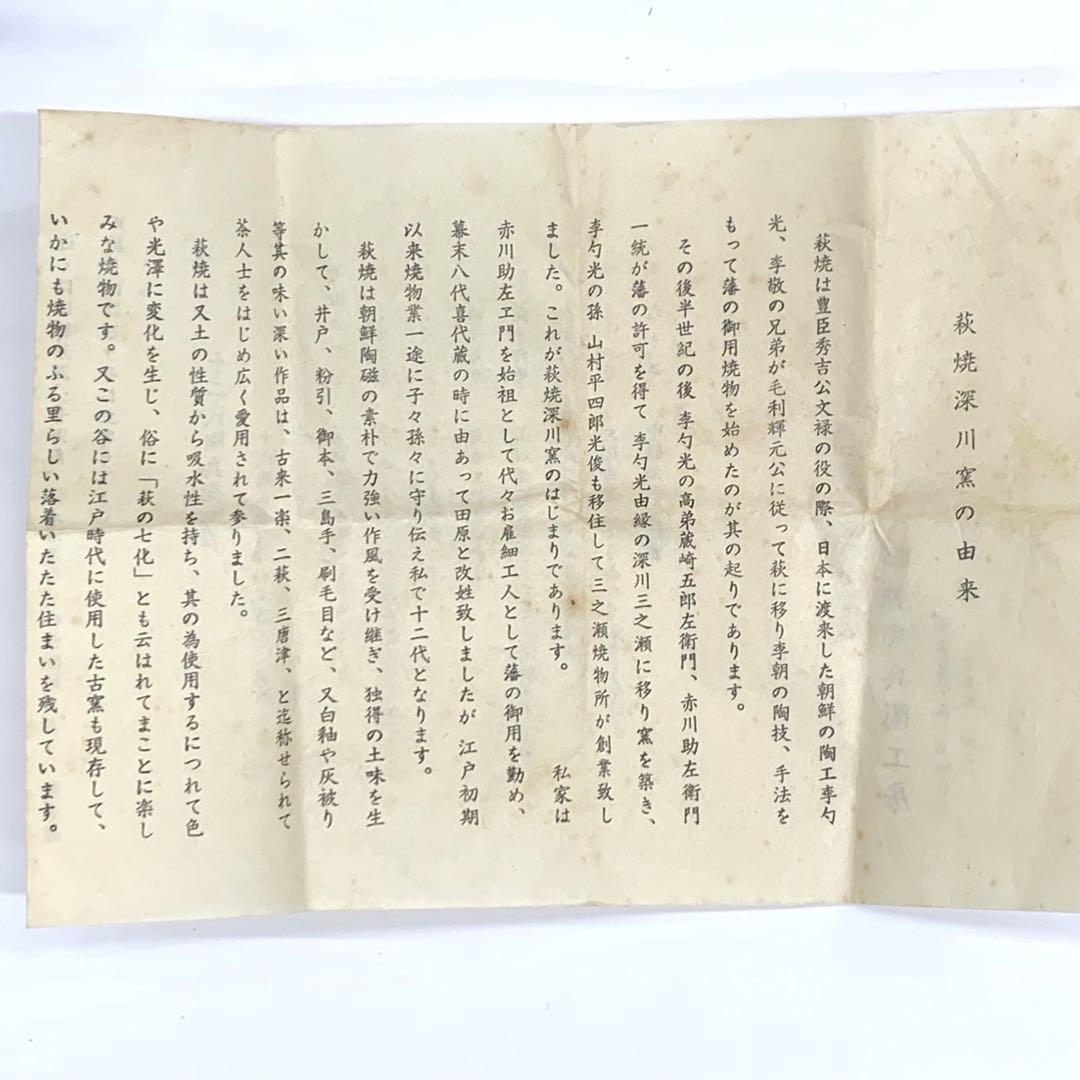 萩焼深川窯の由来
萩焼は豊臣秀吉公文禄の役の際、日本に渡来した朝鮮の陶工李勺
光、李敬の兄弟が毛利輝元公に従って萩に移り李朝の陶技、手法を
もって藩の御用焼物を始めたのが其の起りであります。
その後半世紀の後 李勺光の高弟蔵崎五郎左衛門、赤川助左衛門
一統が藩の許可を得て 李勺光由縁の深川三之瀬に移り窯を築き、
李勺光の孫 山村平四郎光俊も移住して三之瀬焼物所が創業致し
ました。これが萩焼深川窯のはじまりであります。 私家は
赤川助左ヱ門を始祖として代々お雇細工人として藩の御用を勤め、
幕末八代喜代蔵の時に由あって田原と改姓致しましたが 江戸初期
以来焼物業一途に子々孫々に守り伝え私で十二代となります。
萩焼は朝鮮陶磁の素朴で力強い作風を受け継ぎ、独得の土味を生
かして、井戸、粉引、御本、三島手、刷毛目など、又白釉や灰被り
等其の味い深い作品は、古来一楽、二萩、三唐津、と迄称せられて
茶人士をはじめ広く愛用されて参りました。
萩焼は又土の性質から吸水性を持ち、其の為使用するにつれて色
や光澤に変化を生じ、俗に「萩の七化」とも云はれてまことに楽し
みな焼物です。又この谷には江戸時代に使用した古窯も現存して、
いかにも焼物のふる里らしい落着いたたた住まいを残しています。